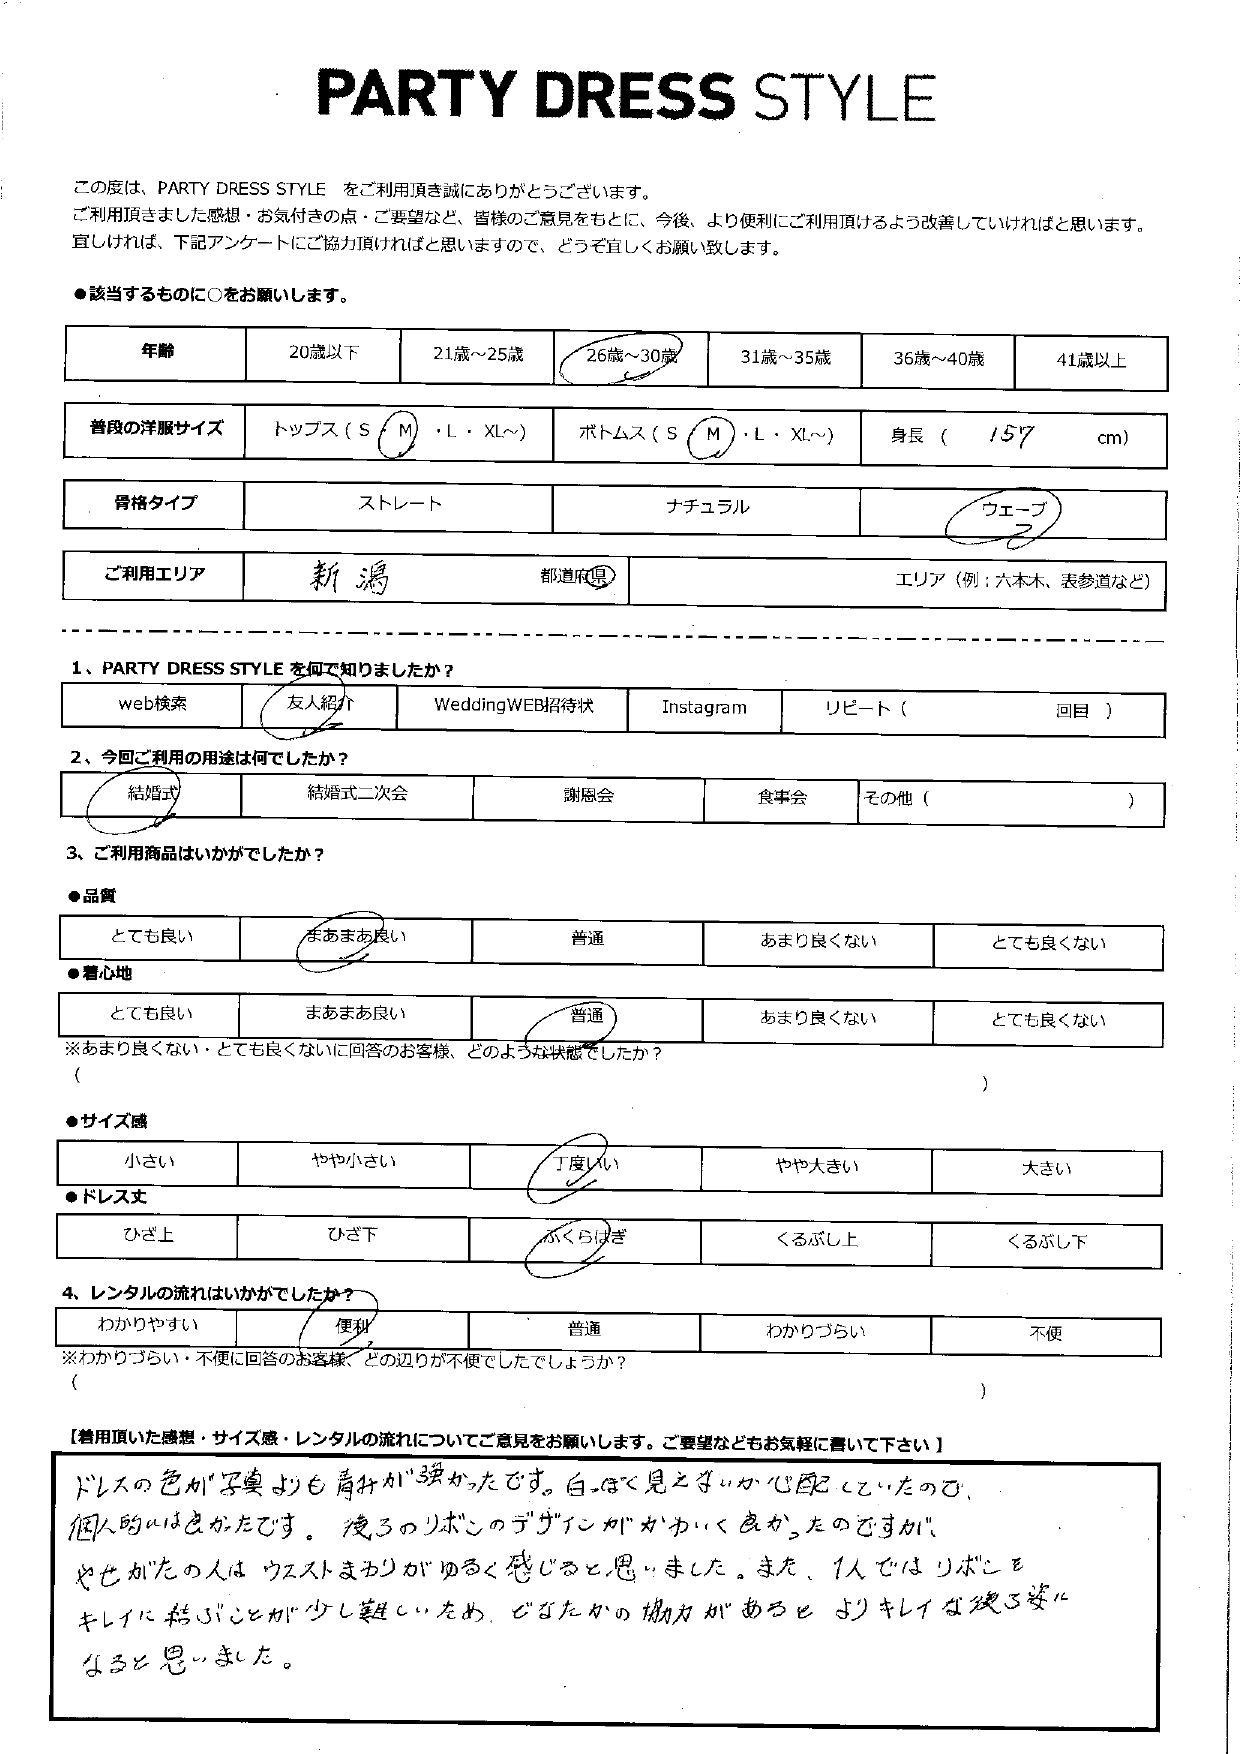 PARTY DRESS STYLE
この度は、PARTY DRESS STYLE をご利用頂き誠にありがとうございます。
ご利用頂きました感想・お気付きの点・ご要望など、皆様のご意見をもとに、今後、より便利にご利用頂けるよう改善していければと思います。
宜しければ、下記アンケートにご協力頂ければと思いますので、どうぞ宜しくお願い致します。
●該当するものに○をお願いします。
年齢 20歳以下 21歳～25歳 26歳～30歳 31歳～35歳 36歳～40歳 41歳以上
普段の洋服サイズ トップス ( S ・ M ・L ・ XL～) ボトムス ( S ・ M ・L ・ XL～) 身長 ( 157 cm)
骨格タイプ ストレート ナチュラル ウェーブ
ご利用エリア 新潟 都道府県 エリア（例：六本木、表参道など）
1、PARTY DRESS STYLE を何で知りましたか？
web検索 友人紹介 WeddingWEB招待状 Instagram リピート（ 回目 ）
2、今回ご利用の用途は何でしたか？
結婚式 結婚式二次会 謝恩会 食事会 その他（ ）
3、ご利用商品はいかがでしたか？
●品質
とても良い まあまあ良い 普通 あまり良くない とても良くない
●着心地
とても良い まあまあ良い 普通 あまり良くない とても良くない
※あまり良くない・とても良くないに回答のお客様、どのような状態でしたか？
（ ）
●サイズ感
小さい やや小さい 丁度いい やや大きい 大きい
●ドレス丈
ひざ上 ひざ下 ふくらはぎ くるぶし上 くるぶし下
4、レンタルの流れはいかがでしたか？
わかりやすい 便利 普通 わかりづらい 不便
※わかりづらい・不便に回答のお客様、どの辺りが不便でしたでしょうか？
（ ）
【着用頂いた感想・サイズ感・レンタルの流れについてご意見をお願いします。ご要望などもお気軽に書いて下さい】
ドレスの色が写真よりも青みが強かったです。白っぽく見えないか心配していたので、
個人的には良かったです。後ろのリボンのデザインがかわいく良かったのですが、
やせがたの人はウエストまわりがゆるく感じると思いました。また、1人ではリボンを
キレイに結ぶことが少し難しいため、どなたかの協力があるとよりキレイな後ろ姿に
なると思いました。